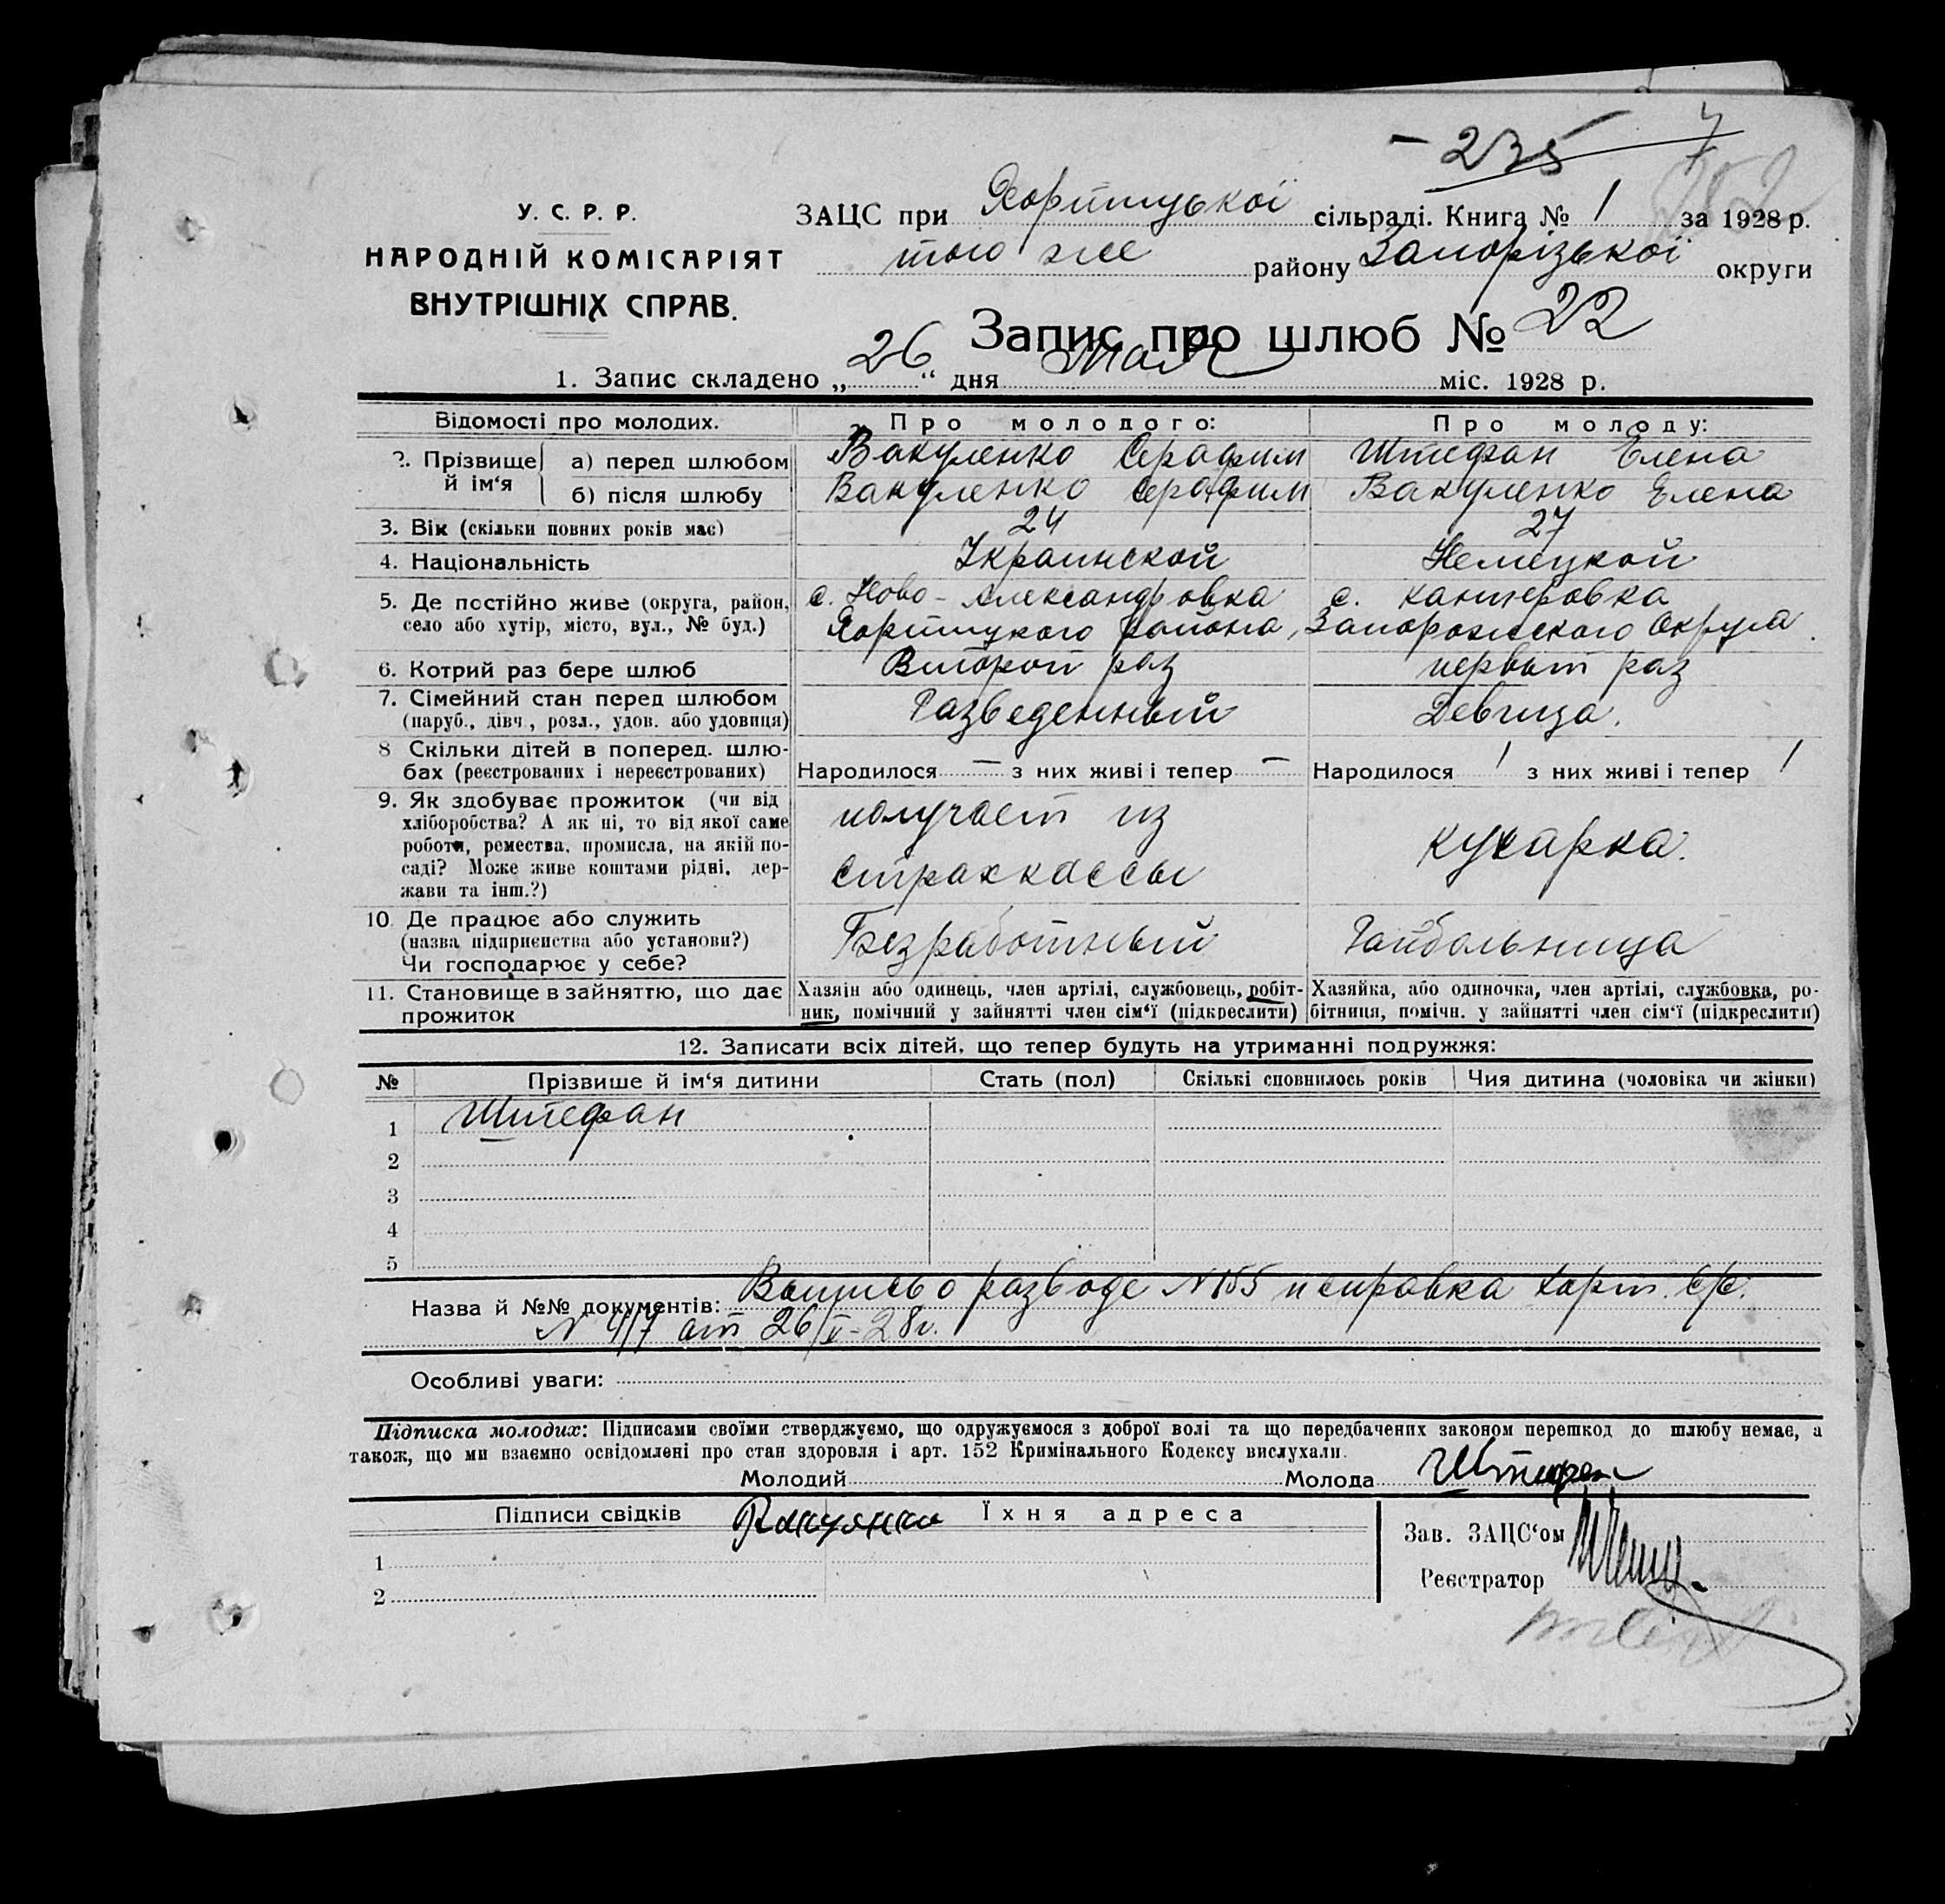 235 7
У. С. Р. Р.
НАРОДНІЙ КОМІСАРІЯТ
ВНУТРІШНІХ СПРАВ.
ЗАЦС при Хортицької сільраді. Книга № 1 за 1928 р.
того же району Запорізької округи
Запис про шлюб № 22
1. Запис складено „26“ дня мая міс. 1928 р.
Відомості про молодих. Про молодого: Про молоду:
2. Прізвище й ім‘я а) перед шлюбом Вакуленко Серафим Штефан Елена
б) після шлюбу Вакуленко Серафим Вакуленко Елена
3. Вік (скільки повних років має) 24 27
4. Національність Украинской Немецкой
5. Де постійно живе (округа, район, с. Ново-Александровка с. Канцеровка
село або хутір, місто, вул., № буд.) Хортицкого района, Запорожского Округа.
6. Котрий раз бере шлюб Второй раз первый раз
7. Сімейний стан перед шлюбом
(паруб., дівч., розл., удов. або удовиця) Разведенный Девица.
8 Скільки дітей в поперед. шлю-
бах (реєстрованих і нереєстрованих) Народилося — з них живі і тепер — Народилося 1 з них живі і тепер 1
9. Як здобуває прожиток (чи від
хліборобства? А як ні, то від якої саме
роботи, ремества, промисла, на якій по-
саді? Може живе коштами рідні, дер-
жави та інш.?)
получает из
страхкассы
кухарка.
10. Де працює або служить
(назва підприєнства або установи?)
Чи господарює у себе?
Безработный Райбольница
11. Становище в зайняттю, що дає
прожиток
Хазяін або одинець, член артілі, службовець, робіт-
ник, помічний у зайнятті член сім‘ї (підкреслити)
Хазяйка, або одиночка, член артілі, службовка, ро-
бітниця, помічн. у зайнятті член сім‘ї (підкреслити)
12. Записати всіх дітей, що тепер будуть на утриманні подружжя:
№ Прізвише й ім‘я дитини Стать (пол) Скількі сповнилось років Чия дитина (чоловіка чи жінки)
1 Штефан
2
3
4
5
Назва й №№ документів: Выпись о разводе N 155 и справка Хорт. С/с.
N 417 от 26/V-28г.
Особливі уваги:
Підписка молодих: Підписами своїми стверджуємо, що одружуємося з доброї волі та що передбачених законом перешкод до шлюбу немає, а
також, що ми взаємно освідомлені про стан здоровля і арт. 152 Кримінального Кодексу вислухали.
Молодий Молода Штефан
Підписи свідків Їхня адреса
1
2
Зав. ЗАЦС‘ом
Реєстратор